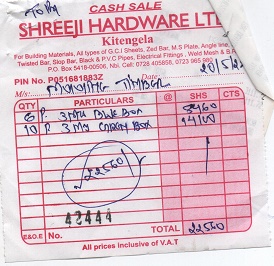 CASH SALE
SHREEJI HARDWARE LTD
Kitengela
For Building Materials, All types of G.C.I Sheets, Zed Bar, M.S Plate, Angle line,
Twisted Bar, Slop Bar, Black & P.V.C Pipes, Electrical Fittings, Wold Mesh & B
P.O. Box 5418-00506, Nbi, Cell: 0728 405858, 0723 965
PIN No. P051681883Z Date: 20/5/2
M/s:
QTY PARTICULARS @ SHS CTS
6 P. 3 8460
10 P. 3 BOX 14100
22560
42444
E&O.E No. TOTAL 22560
All prices inclusive of V.A.T